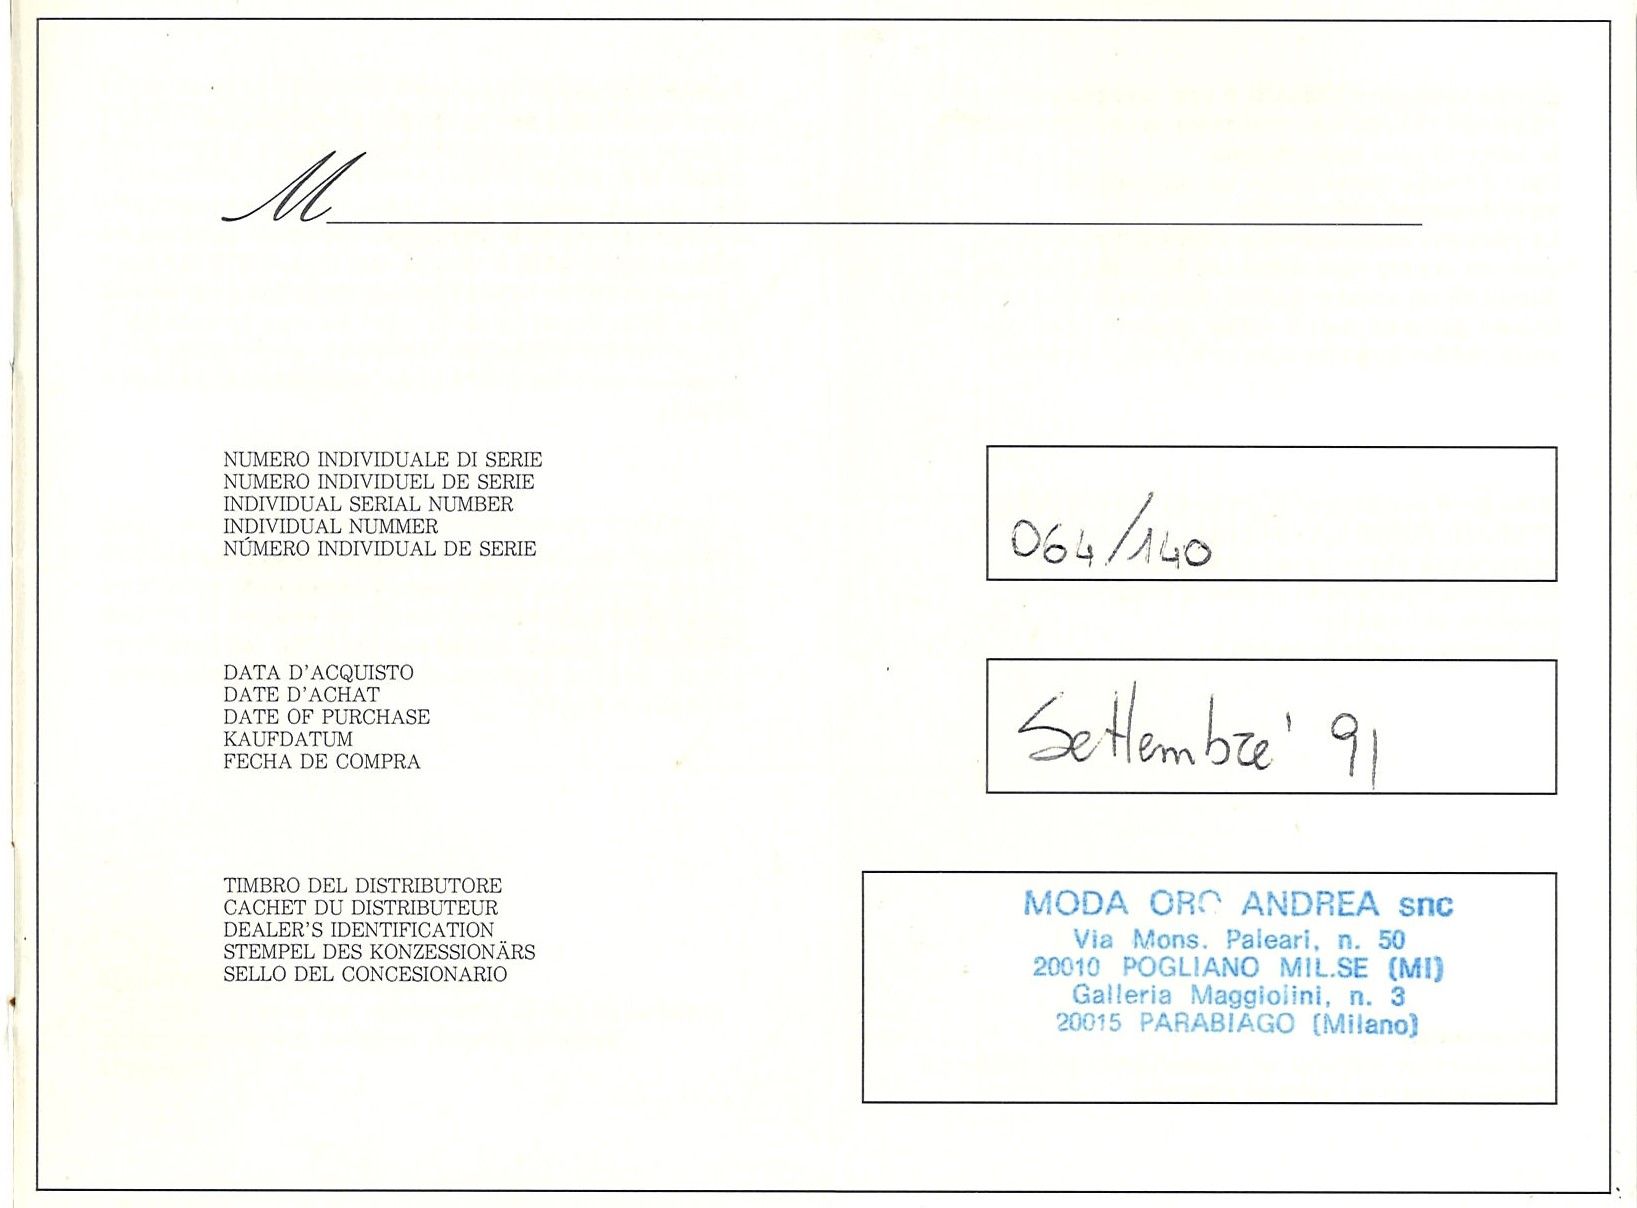 M
NUMERO INDIVIDUALE DI SERIE
NUMERO INDIVIDUEL DE SERIE
INDIVIDUAL SERIAL NUMBER
INDIVIDUAL NUMMER
NÚMERO INDIVIDUAL DE SERIE
064/140
DATA D'ACQUISTO
DATE D'ACHAT
DATE OF PURCHASE
KAUFDATUM
FECHA DE COMPRA
Settembre '91
TIMBRO DEL DISTRIBUTORE
CACHET DU DISTRIBUTEUR
DEALER'S IDENTIFICATION
STEMPEL DES KONZESSIONÄRS
SELLO DEL CONCESIONARIO
MODA ORO ANDREA snc
Via Mons. Paleari, n. 50
20010 POGLIANO MIL.SE (MI)
Galleria Maggiolini, n. 3
20015 PARABIAGO (Milano)